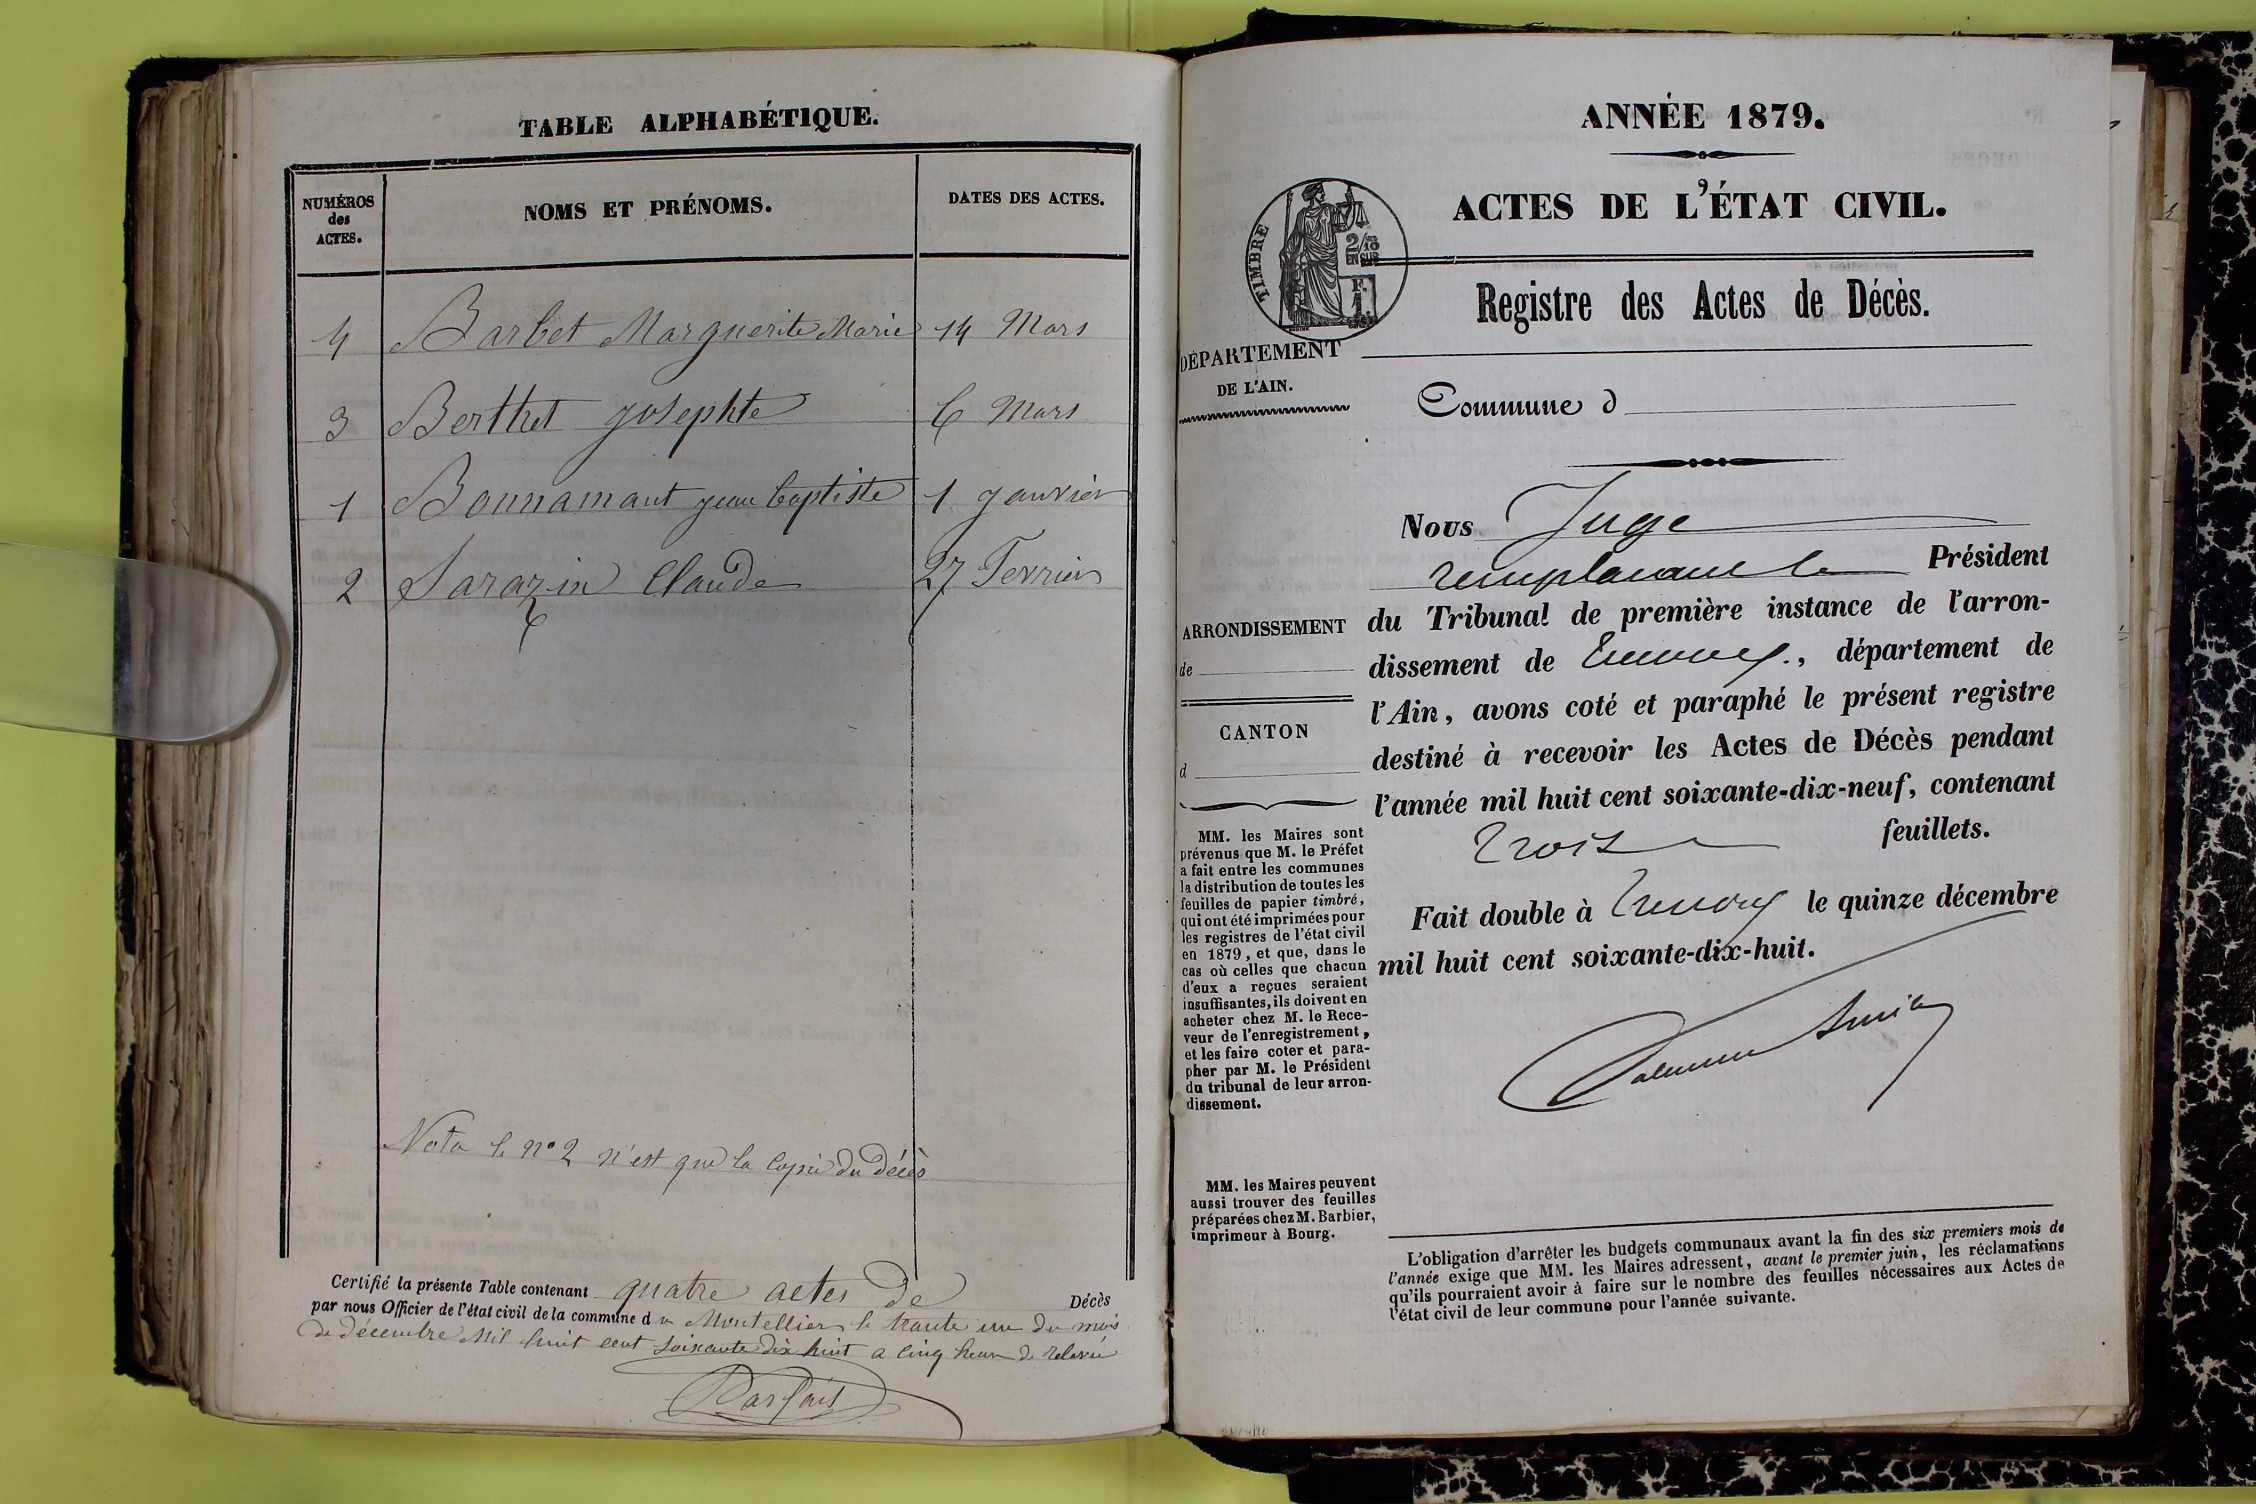 TABLE ALPHABÉTIQUE.
NUMÉROS
des
ACTES.
NOMS ET PRÉNOMS.
DATES DES ACTES.
4 Barbet Marguerite Marie 14 Mars
3 Berthet josephte 6 Mars
1 Bonnamant jean baptiste 1 janvier
2 Sarazin Claude 27 Fevrier
Nota le n° 2 n'est que la Copie du décès
Certifié la présente Table contenant quatre actes de Décès
par nous Officier de l'état civil de la commune de Montellier le trente un du mois
de décembre Mil huit cent soixante dix huit a cinq heure de relevée
Parfait
ANNÉE 1879.
ACTES DE L'ÉTAT CIVIL.
TIMBRE
2/10
EN SUS
F.
1.
Registre des Actes de Décès.
DÉPARTEMENT
DE L'AIN.
Commune d
Nous Juge
remplacant le Président
du Tribunal de première instance de l'arron-
dissement de Trevoux., département de
l'Ain, avons coté et paraphé le présent registre
destiné à recevoir les Actes de Décès pendant
l'année mil huit cent soixante-dix-neuf, contenant
Trois feuillets.
Fait double à Trevoux le quinze décembre
mil huit cent soixante-dix-huit.
ARRONDISSEMENT
de
CANTON
d
MM. les Maires sont
prévenus que M. le Préfet
a fait entre les communes
la distribution de toutes les
feuilles de papier timbré,
qui ont été imprimées pour
les registres de l'état civil
en 1879, et que, dans le
cas où celles que chacun
d'eux a reçues seraient
insuffisantes, ils doivent en
acheter chez M. le Rece-
veur de l'enregistrement,
et les faire coter et para-
pher par M. le Président
du tribunal de leur arron-
dissement.
MM. les Maires peuvent
aussi trouver des feuilles
préparées chez M. Barbier,
imprimeur à Bourg.
L'obligation d'arrêter les budgets communaux avant la fin des six premiers mois de
l'année exige que MM. les Maires adressent, avant le premier juin, les réclamations
qu'ils pourraient avoir à faire sur le nombre des feuilles nécessaires aux Actes de
l'état civil de leur commune pour l'année suivante.